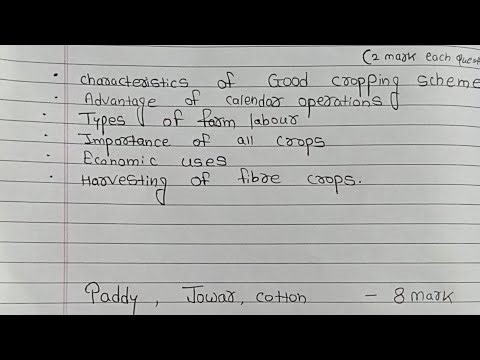 (2 mark each quest
• characteristics of Good cropping scheme
• Advantage of calendar operations
• Types of farm labour
• Importance of all crops
• Economic uses
• Harvesting of fibre crops.
Paddy, Jowar, cotton - 8 mark